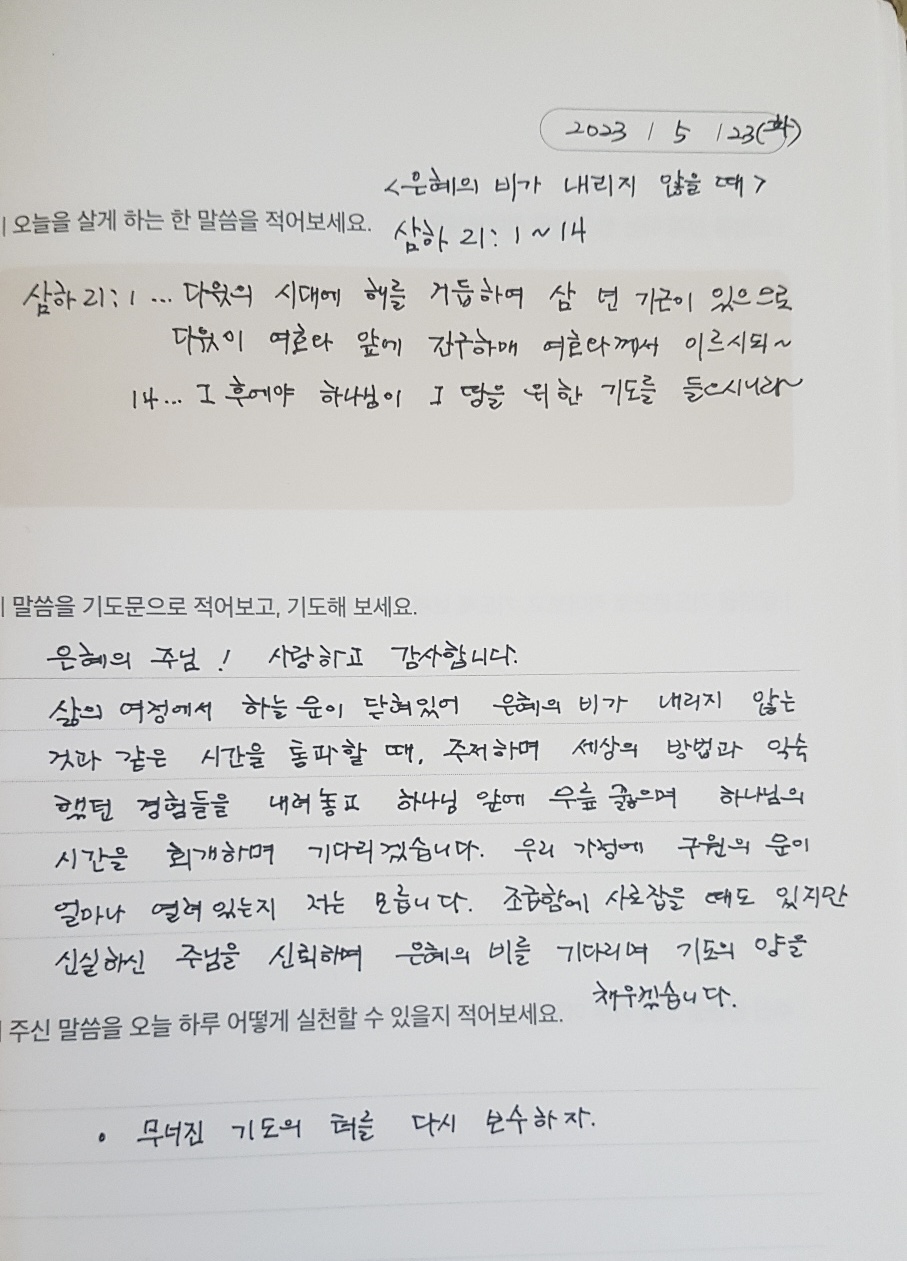 2023 / 5 / 23(화)
<은혜의 비가 내리지 않을 때>
| 오늘을 살게 하는 한 말씀을 적어보세요.
삼하 21:1~14
삼하21:1... 다윗의 시대에 해를 거듭하여 삼 년 기근이 있으므로
다윗이 여호와 앞에 간구하매 여호와께서 이르시되~
14... 그 후에야 하나님이 그 땅을 위한 기도를 들으시니라~
| 말씀을 기도문으로 적어보고, 기도해 보세요.
은혜의 주님! 사랑하고 감사합니다.
삶의 여정에서 하늘 문이 닫혀있어 은혜의 비가 내리지 않는
것과 같은 시간을 통과할 때, 주저하며 세상의 방법과 익숙
했던 경험들을 내려놓고 하나님 앞에 무릎 꿇으며 하나님의
시간을 회개하며 기다리겠습니다. 우리 가정에 구원의 문이
얼마나 열려 있는지 저는 모릅니다. 조급함에 사로잡을 때도 있지만
신실하신 주님을 신뢰하며 은혜의 비를 기다리며 기도의 양을
채우겠습니다.
| 주신 말씀을 오늘 하루 어떻게 실천할 수 있을지 적어보세요.
• 무너진 기도의 터를 다시 보수하자.